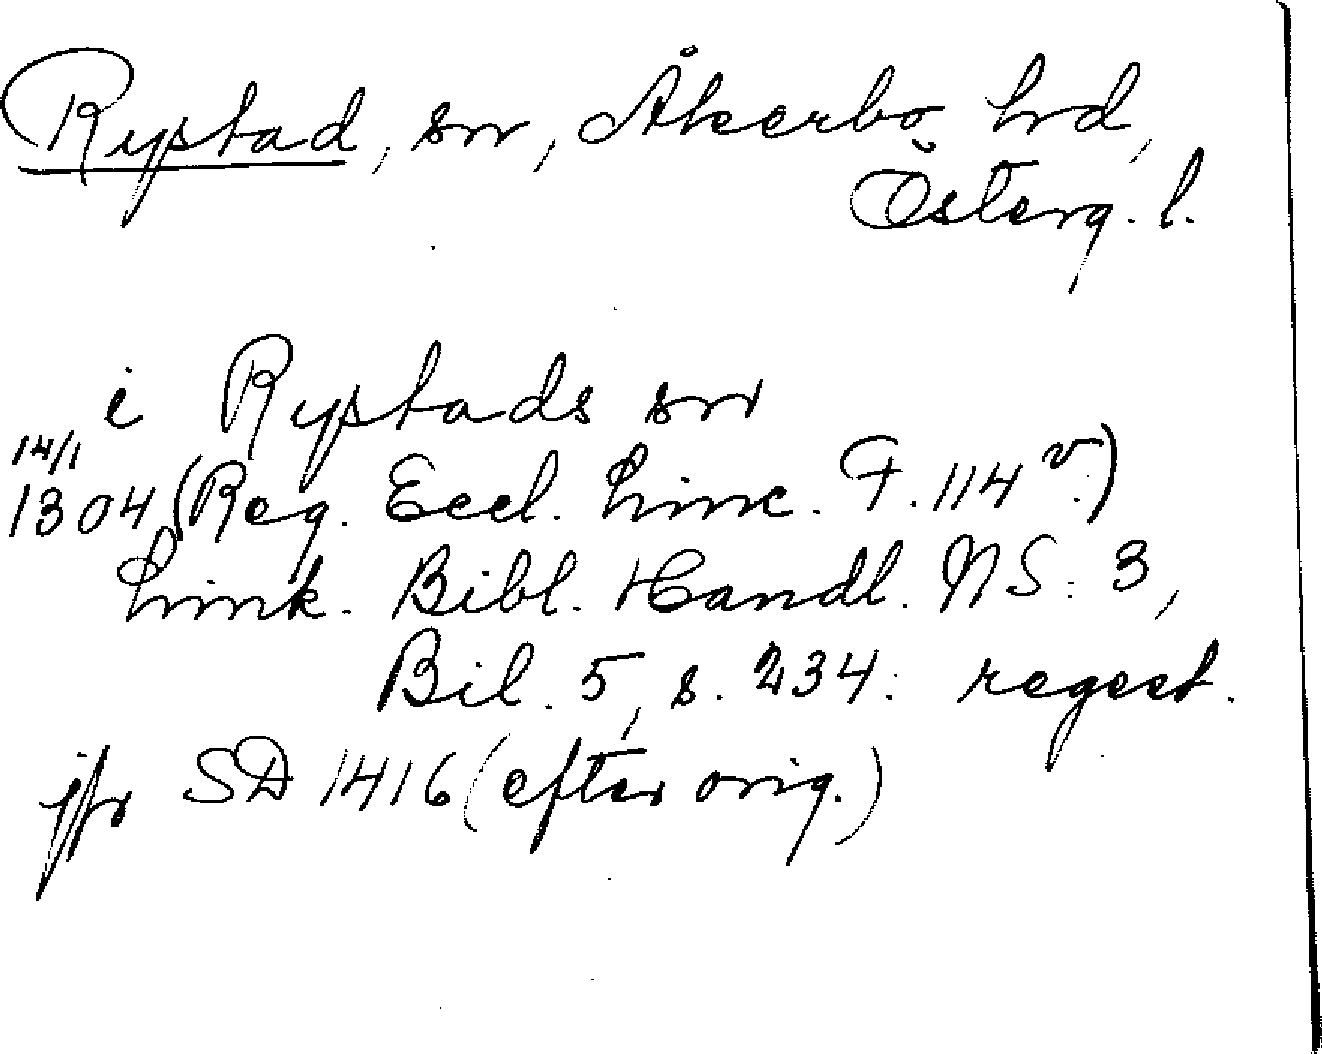 Rystad, sn, Åkerbo hd,
Österg. l.
i Rystads sn
14/1
1304 (Reg. Eccl. Linc. F. 114 v.)
Link. Bibl. Handl. NS: 3,
Bil. 5, s. 234: regest.
jfr SD 1416 (efter orig.)